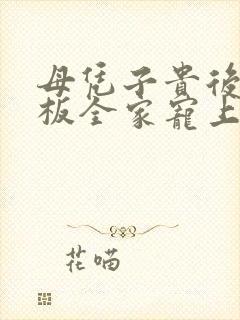 母凭子貴後
板全家寵上
花喵